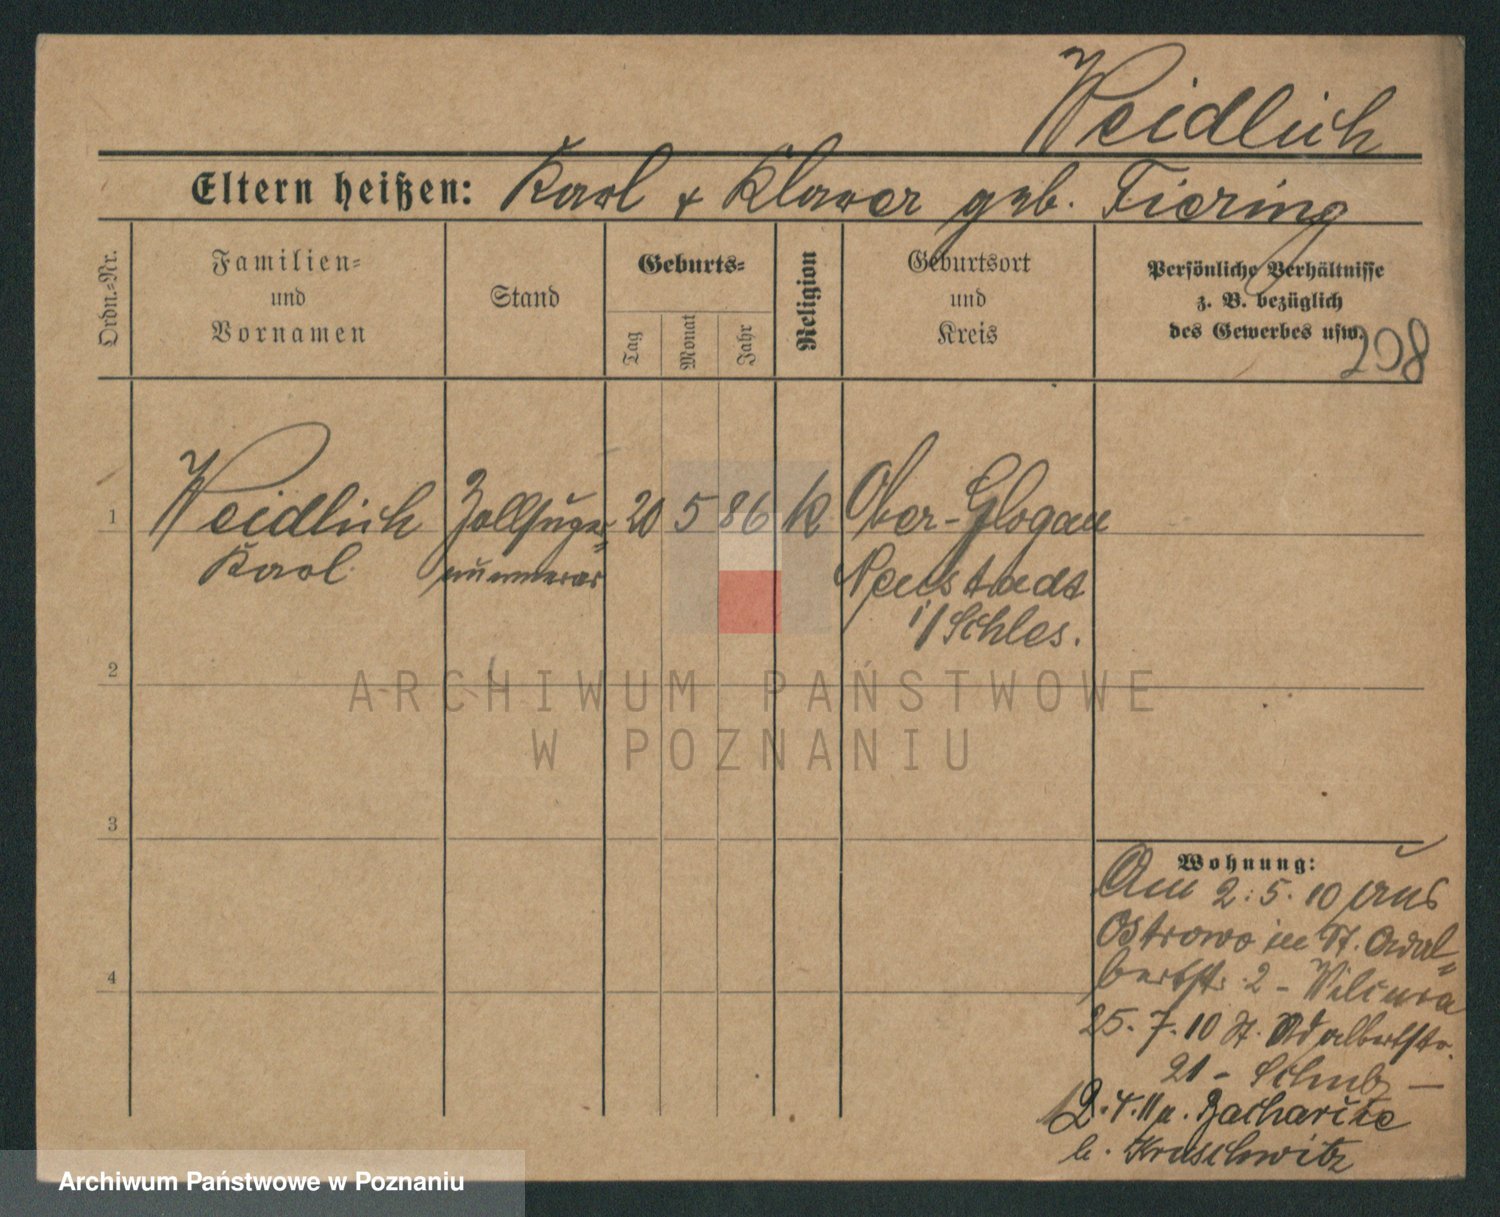 Weidlich
Eltern heißen: Karl + Klara geb. Fiering
Ordn.-Nr.
Familien=
und
Vornamen
Stand
Geburts=
Tag
Monat
Jahr
Religion
Geburtsort
und
Kreis
Persönliche Verhältnisse
z. B. bezüglich
des Gewerbes usw.
208
1 Weidlich Zollsuper= 20 5 86 k Ober-Glogau
Karl nummerar Neustadt
i/Schles.
2
3
4
ARCHIWUM PAŃSTWOWE
W POZNANIU
Wohnung:
Am 2.5.10 aus
Ostrowo in St. Adal=
bertstr. 2 -
25.7.10 St. Adalbertstr.
21 - Schulz -
2.4.11 n. Zacharice
b. Kruschwitz
Archiwum Państwowe w Poznaniu